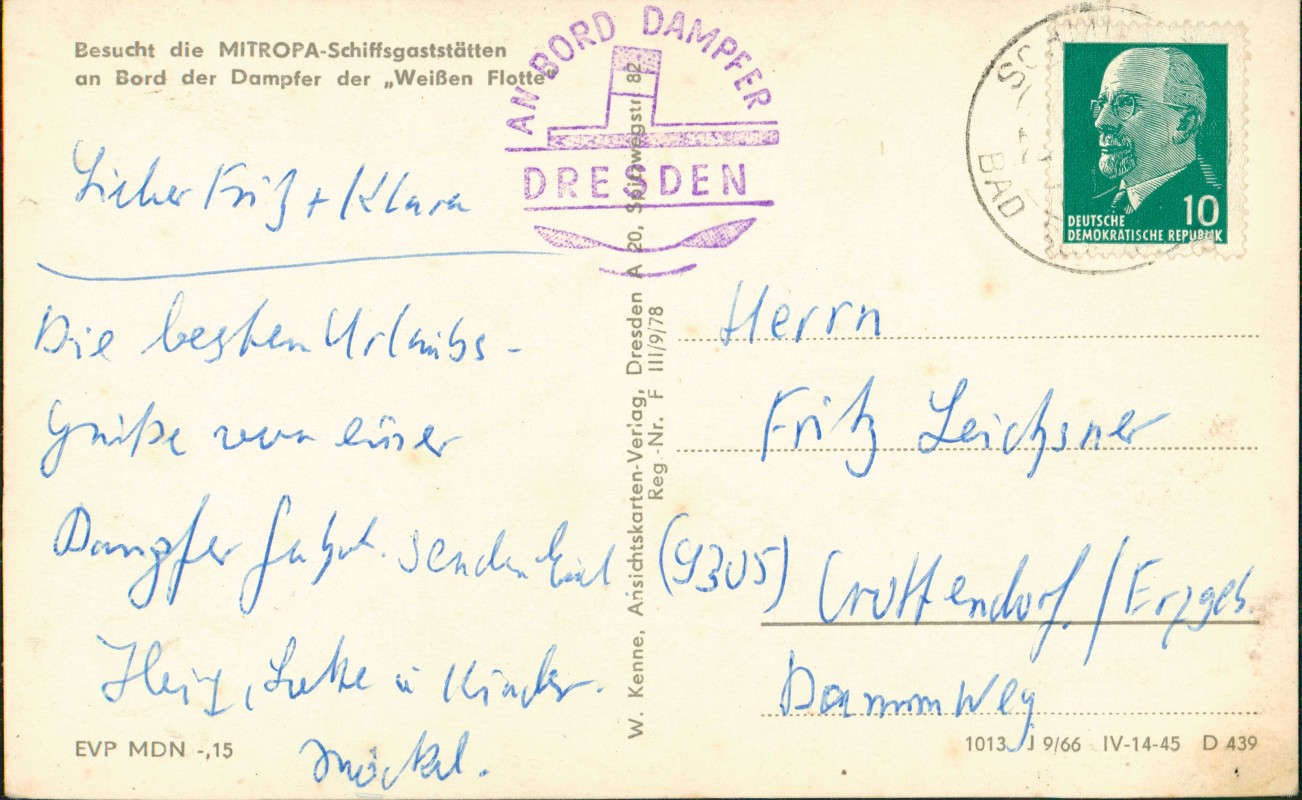 Besucht die MITROPA-Schiffsgaststätten
an Bord der Dampfer der „Weißen Flotte“
AN BORD DAMPFER
DRESDEN
BAD
DEUTSCHE
DEMOKRATISCHE REPUBLIK
10
Lieber Fritz + Klara
Die besten Urlaubs-
grüße von einer
Dampferfahrt senden Euch
Heinz, Lotte u Kinder.
Möckel.
W. Kenne, Ansichtskarten-Verlag, Dresden A 20, Spitzwegstr. 82
Reg.-Nr. F III/9/78
Herrn
Fritz Leichsner
(9305) Crottendorf. / Erzgeb.
Dammweg
EVP MDN -,15
1013 J 9/66 IV-14-45 D 439